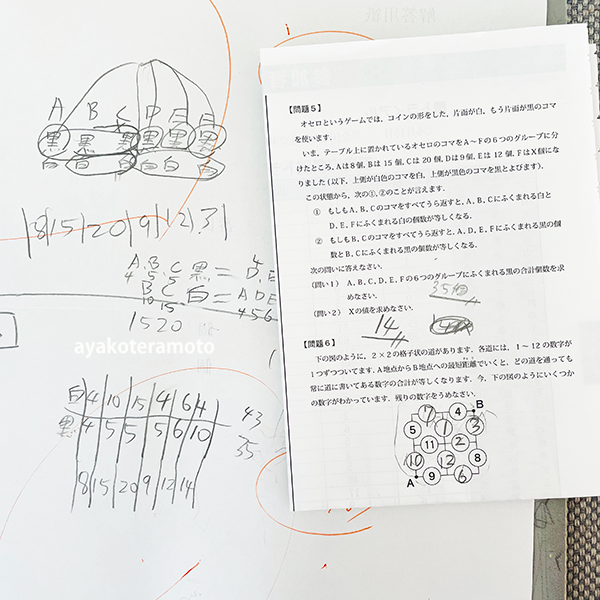 解答用紙
【問題5】
オセロというゲームでは、コインの形をした、片面が白、もう片面が黒のコマ
を使います.
いま、テーブル上に置かれているオセロのコマをA~Fの6つのグループに分
けたところ、Aは8個、Bは15個、Cは20個、Dは9個、Eは12個、FはX個にな
りました(以下、上側が白色のコマを白、上側が黒色のコマを黒とよびます).
この状態から、次の①、②のことが言えます.
① もしもA、B、Cのコマをすべてうら返すと、A、B、Cにふくまれる白と
D、E、Fにふくまれる白の個数が等しくなる.
② もしもB、Cのコマをすべてうら返すと、A、D、E、Fにふくまれる黒の個
数とB、Cにふくまれる黒の個数が等しくなる.
次の問いに答えなさい.
(問い1) A、B、C、D、E、Fの6つのグループにふくまれる黒の合計個数を求
めなさい. 35個
(問い2) Xの値を求めなさい.
14
【問題6】
下の図のように、2×2の格子状の道があります. 各道には、1~12の数字が
1つずつついてます. A地点からB地点への最短距離でいくと、どの道を通っても
常に道に書いてある数字の合計が等しくなります. 今、下の図のようにいくつか
の数字がわかっています. 残りの数字をうめなさい.
7 4 B
5 1 3
11 2
10 12 8
A 9 6
A B C D E F
黒 黒 黒 黒 黒 黒
白 白 白 白 白 白
8 15 20 9 12 3
A, B, C 黒 = D, E
4 5 5
B C 白 = A D E
10 15 4 5 6
15 20
ayakoteramoto
白 4 10 15 4 6 4 43
黒 4 5 5 5 6 10 35
8 15 20 9 12 14